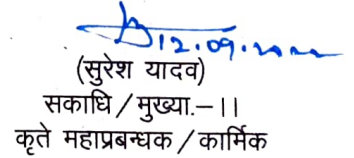 12.09.2022
(सुरेश यादव)
सकाधि / मुख्या.-II
कृते महाप्रबन्धक / कार्मिक